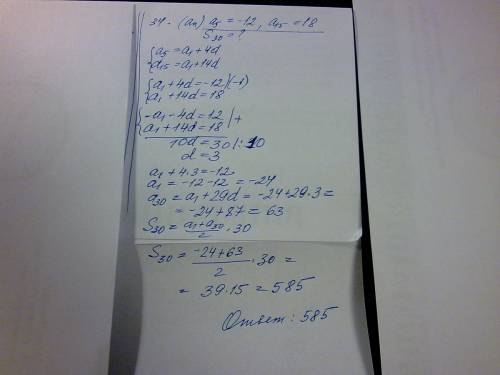 37. (an) a5 = -12, a15 = 18
S30 = ?
{a5 = a1 + 4d
{a15 = a1 + 14d
{a1 + 4d = -12 |(-1)
{a1 + 14d = 18
{-a1 - 4d = 12 | +
{a1 + 14d = 18
10d = 30 |: 10
d = 3
a1 + 4·3 = -12
a1 = -12 - 12 = -24
a30 = a1 + 29d = -24 + 29·3 =
= -24 + 87 = 63
S30 = (a1 + a30)/2 · 30
S30 = (-24 + 63)/2 · 30 =
= 39·15 = 585
Ответ: 585